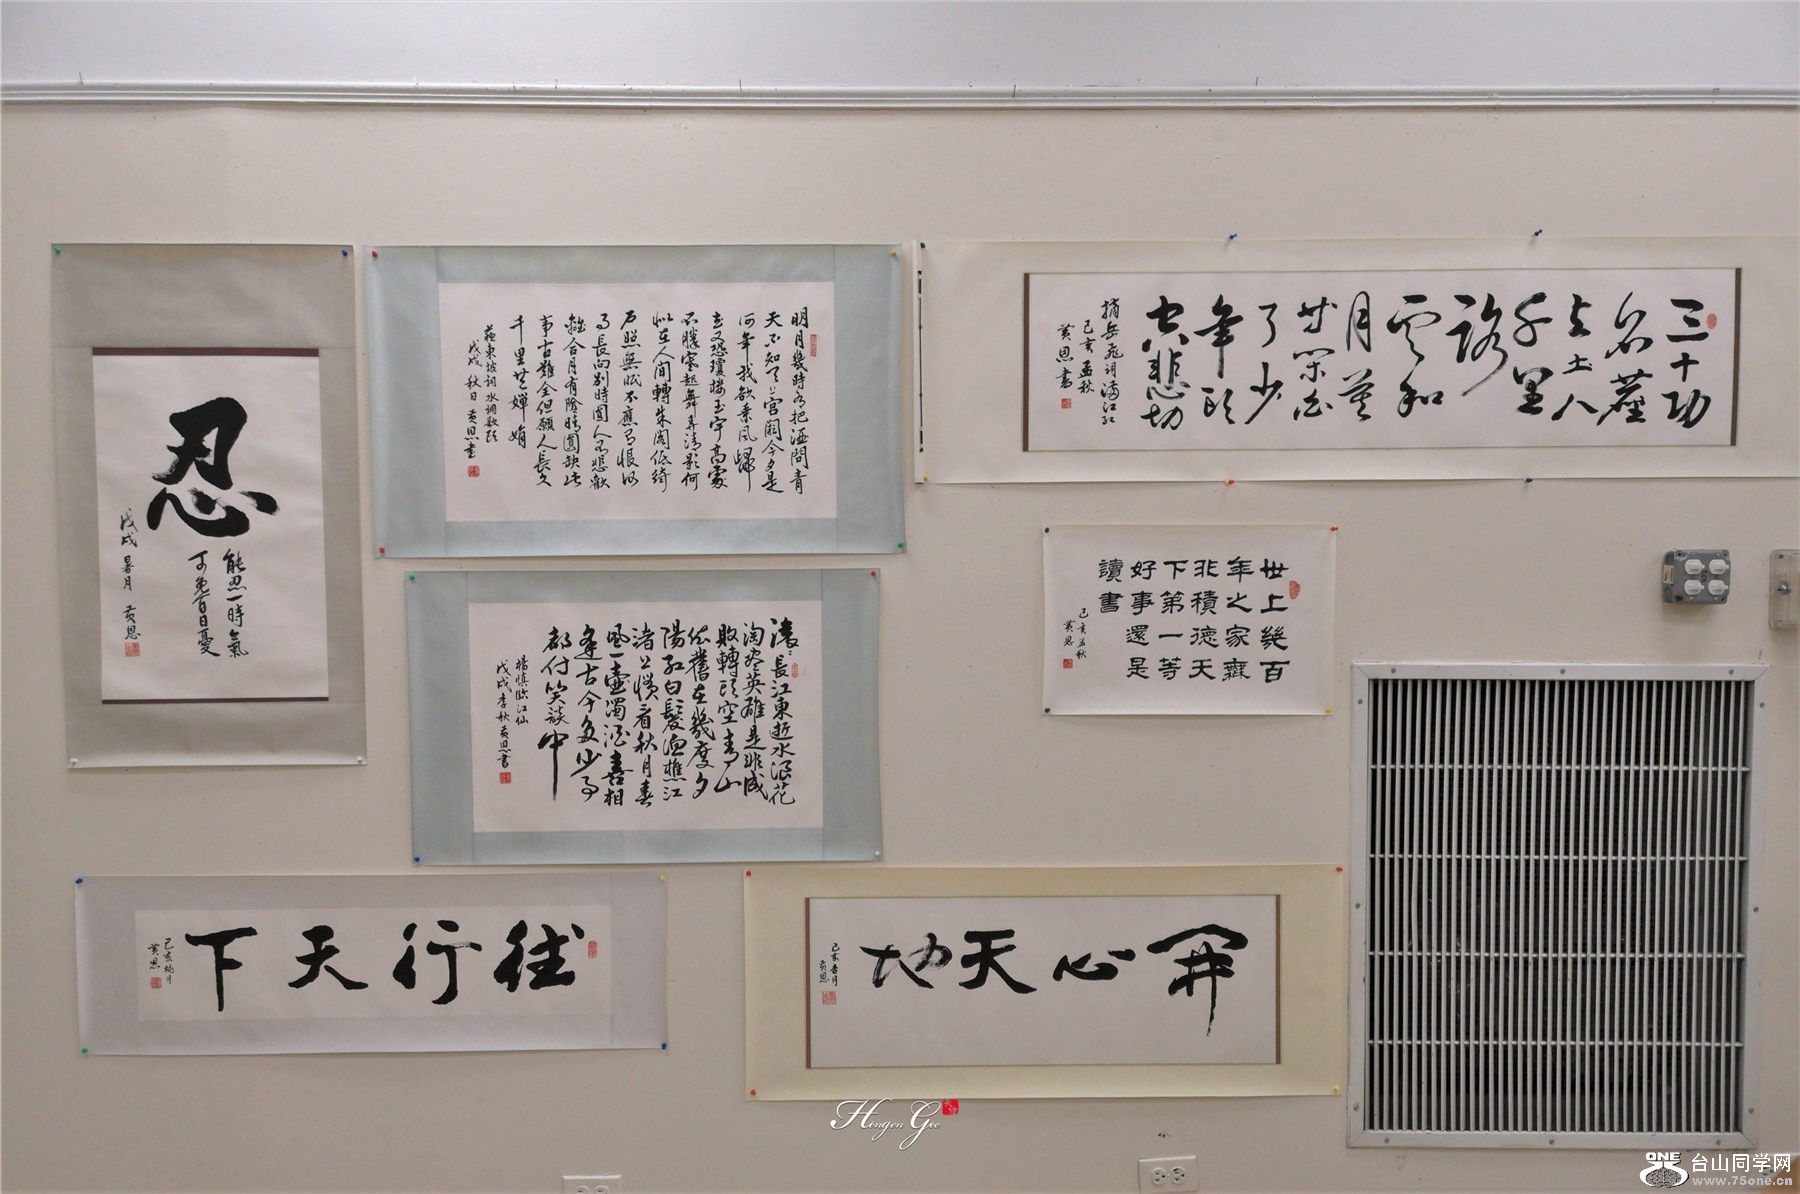 忍
能忍一時氣
可免百日憂
戊戌 暑月 黄恩
明月幾時有把酒問青
天不知天上宫闕今夕是
何年我欲乘風歸
去又恐瓊樓玉宇高處
不勝寒起舞弄清影何
似在人間轉朱閣低綺
户照無眠不應有恨何
事長向别時圓人有悲歡
離合月有陰晴圓缺此
事古難全但願人長久
千里共嬋娟
蘇東坡詞水调歌頭
戊戌秋日黄恩書
三十功
名塵
与土八
千里
路
雲和
月莫
等閑白
了少
年頭
空悲切
摘岳飛詞满江红
己亥孟秋
黄恩書
滚滚長江東逝水浪花
淘盡英雄是非成
敗轉頭空青山
依舊在幾度夕
陽紅白髮渔樵江
渚上慣看秋月春
風一壺濁酒喜相
逢古今多少事
都付笑談中
楊慎临江仙
戊戌季秋黄恩書
世上幾百
年之家無
非積德天
下第一等
好事還是
讀書
己亥孟秋
黄恩
往行天下
黄恩
開心天地
黄恩
Hengen Gee
ONE
台山同学网
www.75one.cn